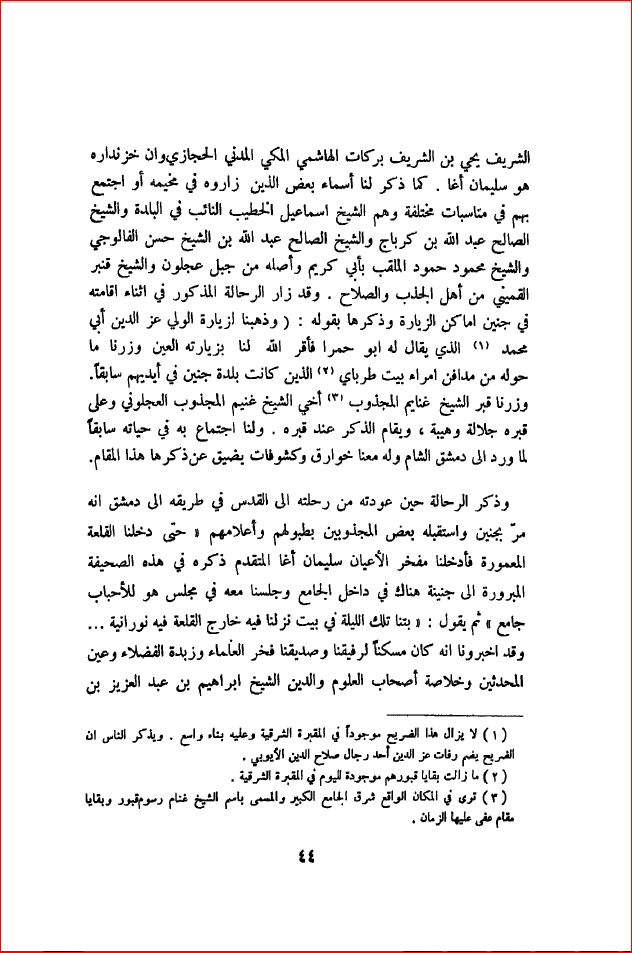 الشريف يحي بن الشريف بركات الهاشمي المكي المدني الحجازي وان خزنداره
هو سليمان أغا . كما ذكر لنا أسماء بعض الذين زاروه في مخيمه أو اجتمع
بهم في مناسبات مختلفة وهم الشيخ اسماعيل الخطيب النائب في البلدة والشيخ
الصالح عبد الله بن كرباج والشيخ الصالح عبد الله بن الشيخ حسن الفالوجي
والشيخ محمود حمود الملقب بأبي كريم وأصله من جبل عجلون والشيخ قنبر
القميني من أهل الجذب والصلاح . وقد زار الرحالة المذكور في اثناء اقامته
في جنين اماكن الزيارة وذكرها بقوله : ( وذهبنا لزيارة الولي عز الدين أبي
محمد (١) الذي يقال له ابو حمرا فأقر الله لنا بزيارته العين وزرنا ما
حوله من مدافن امراء بيت طرباي (٢) الذين كانت بلدة جنين في أيديهم سابقاً.
وزرنا قبر الشيخ غنايم المجذوب (٣) أخي الشيخ غنيم المجذوب العجلوني وعلى
قبره جلالة وهيبة ، ويقام الذكر عند قبره . ولنا اجتماع به في حياته سابقاً
لما ورد الى دمشق الشام وله معنا خوارق وكشوفات يضيق عن ذكرها هذا المقام.
وذكر الرحالة حين عودته من رحلته الى القدس في طريقه الى دمشق انه
مرّ بجنين واستقبله بعض المجذوبين بطبولهم وأعلامهم « حتّى دخلنا القلعة
المعمورة فأدخلنا مفخر الأعيان سليمان أغا المتقدم ذكره في هذه الصحيفة
المبرورة الى جنينة هناك في داخل الجامع وجلسنا معه في مجلس هو للأحباب
جامع » ثم يقول : « بتنا تلك الليلة في بيت نزلنا فيه خارج القلعة فيه نورانية ...
وقد اخبرونا انه كان مسكناً لرفيقنا وصديقنا فخر العلماء وزبدة الفضلاء وعين
المحدثين وخلاصة أصحاب العلوم والدين الشيخ ابراهيم بن عبد العزيز بن
(١) لا يزال هذا الضريح موجوداً في المقبرة الشرقية وعليه بناء واسع . ويذكر الناس ان
الضريح يضم رفات عز الدين أحد رجال صلاح الدين الأيوبي .
(٢) ما زالت بقايا قبورهم موجودة لليوم في المقبرة الشرقية .
(٣) ترى في المكان الواقع شرق الجامع الكبير والمسمى باسم الشيخ غنام رسوم قبور وبقايا
مقام عفى عليها الزمان .
٤٤